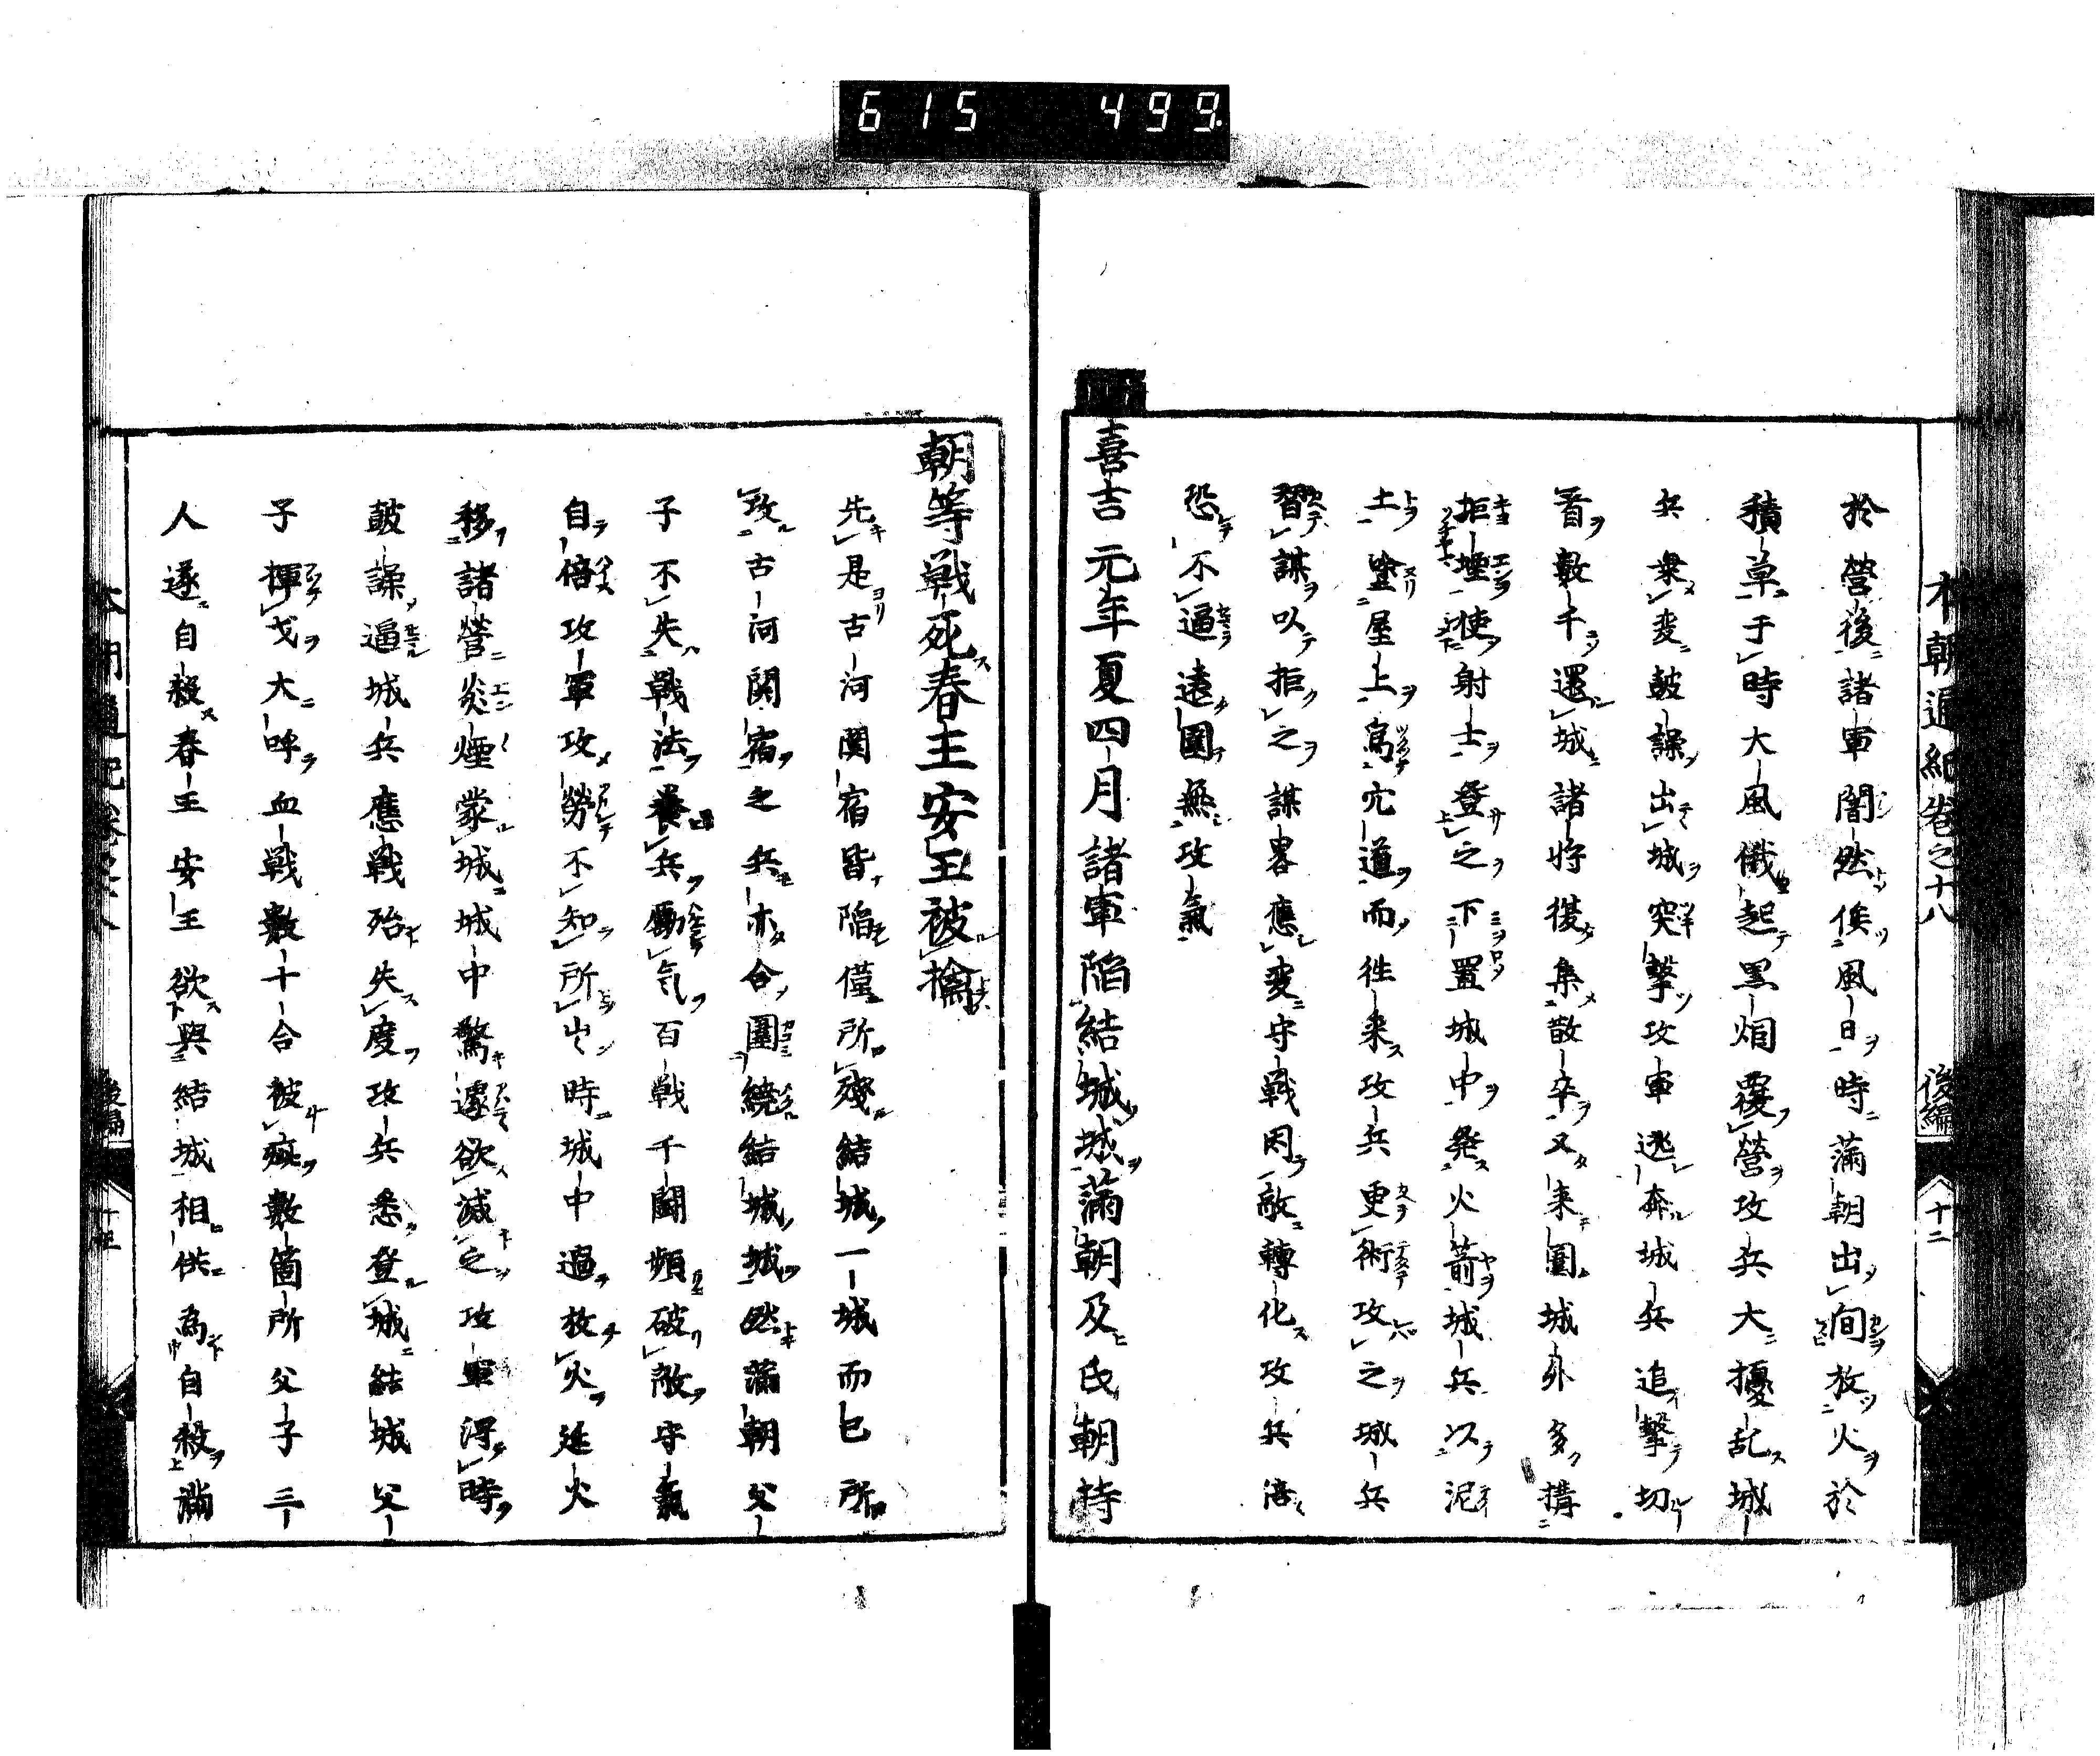 615 499
本朝通紀卷之十八 後編 十二
於營後諸軍闇然俟風日時滿朝出間放火於
積草于時大風俄起黑烟覆營攻兵大擾乱城
兵乗変鼓譟出城突撃攻軍逃奔城兵追撃切
首數千還城諸将復集散卒又来圍城外多搆
拒堙使射士登之下置城中発火箭城兵以泥
土塗屋上為穴道而往来攻兵更術攻之城兵
習謀以拒之謀畧應変守戦因敵轉化攻兵
恐不逼遠圍無攻氣
嘉吉元年夏四月諸軍陥結城城滿朝及氏朝持
朝等戦死春王安王被擒
先是古河関宿皆陥僅所殘結城一城而已所
攻古河関宿之兵亦合圍繞結城城然滿朝父
子不失戦法養兵勵気百戦千闘頻破敵守氣
自倍攻軍攻勞不知所出時城中過放火延火
移諸營炎煙蒙城城中驚遽欲滅之攻軍得時
鼓譟逼城兵應戦殆失度攻兵悉登城結城父
子揮戈大呼血戦數十合被疵數箇所父子三
人遂自殺春王安王欲與結城相供為自殺滿
本朝通紀卷之十八 後編